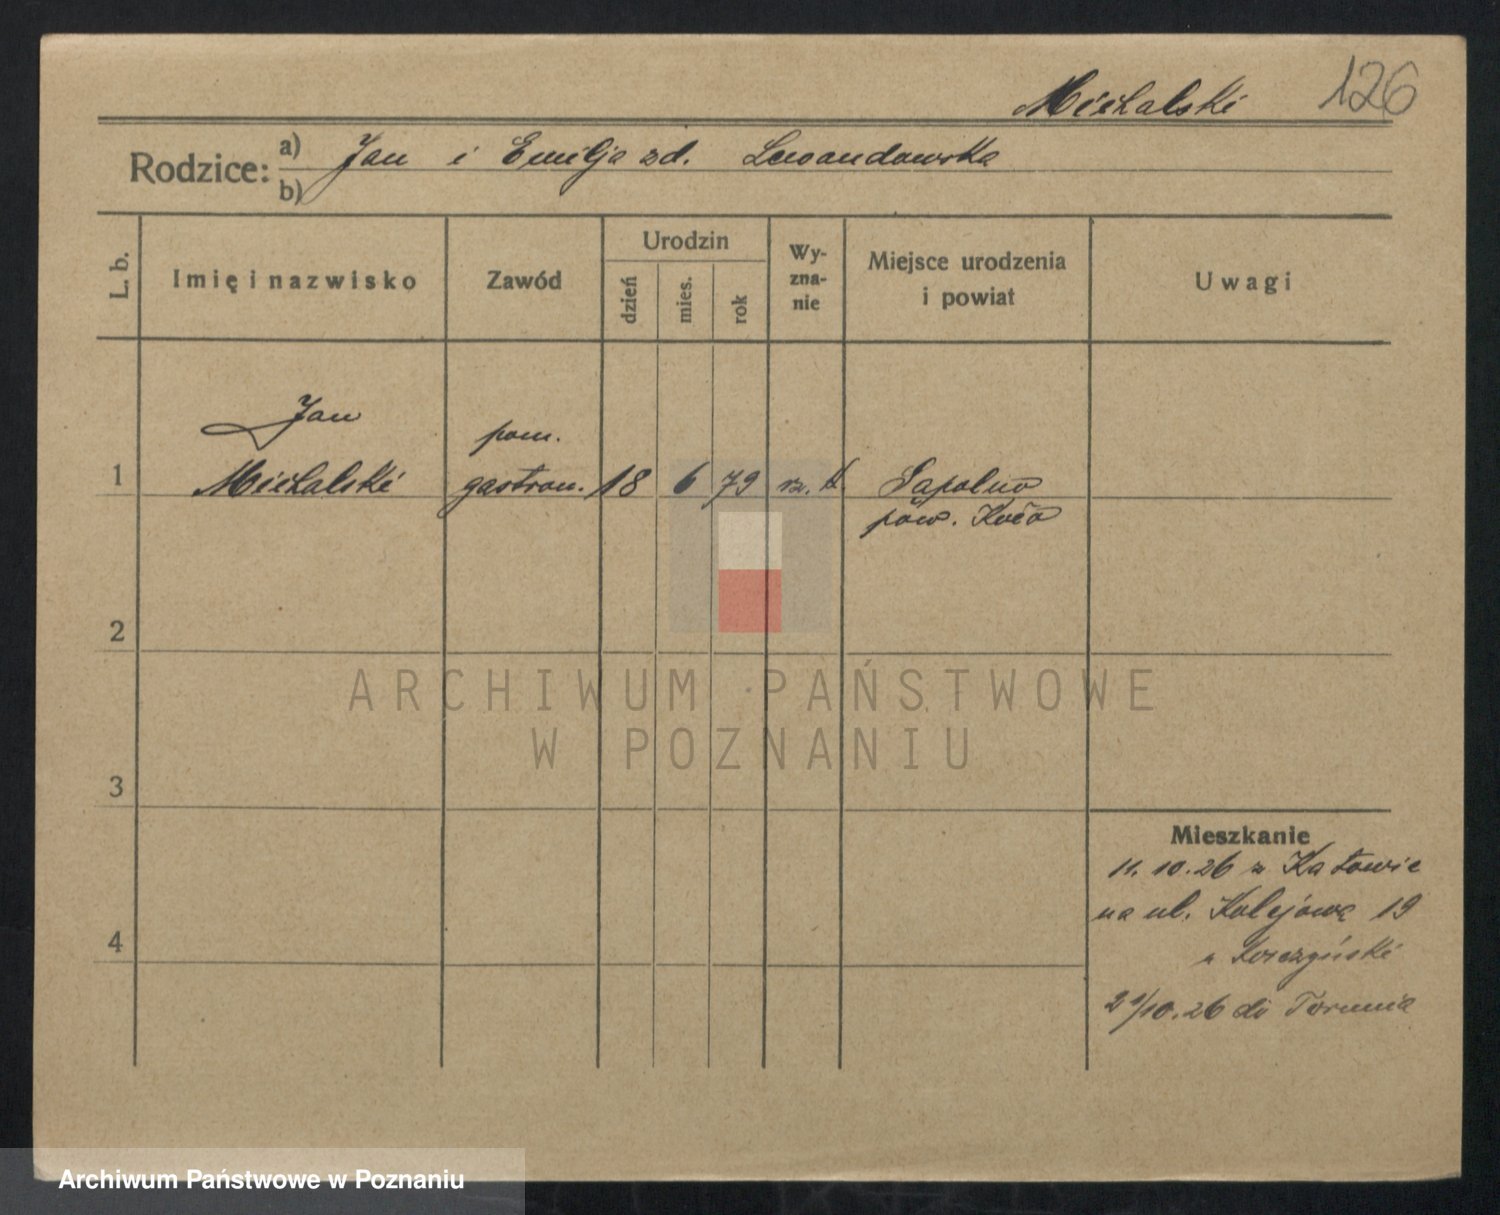 Michalski 126
Rodzice: a) Jan i Emilja zd. Lewandowska
b)
L. b.
Imię i nazwisko
Zawód
Urodzin
dzień
mies.
rok
Wy-
zna-
nie
Miejsce urodzenia
i powiat
Uwagi
Jan
pom.
1 Michalski gastron. 18 6 79 rz. k. Sapolno
pow. Koło
2
ARCHIWUM PAŃSTWOWE
W POZNANIU
3
Mieszkanie
11.10.26 z Katowic
na ul. Kolejową 19
4
21/10.26 do Torunia
Archiwum Państwowe w Poznaniu